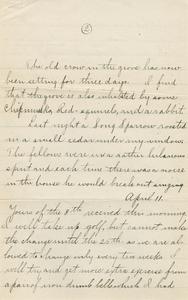 ②
The old crow in the grove has now
been setting for three days. I find
that the grove is also inhabited by some
Chipmunks, Red-squirrels, and a rabbit.
Last night a Song Sparrow roosted
in a small cedar under my window.
The fellow were in a rather hilarious
spirit and each time there was a noise
in the house he would break out singing.
April 11.
Yours of the 8th received this morning.
I will take up golf, but cannot make
the change until the 25th as we are al-
lowed to change only every two weeks. I
will try and get more exercise from
a pair of iron dumb bells which I had